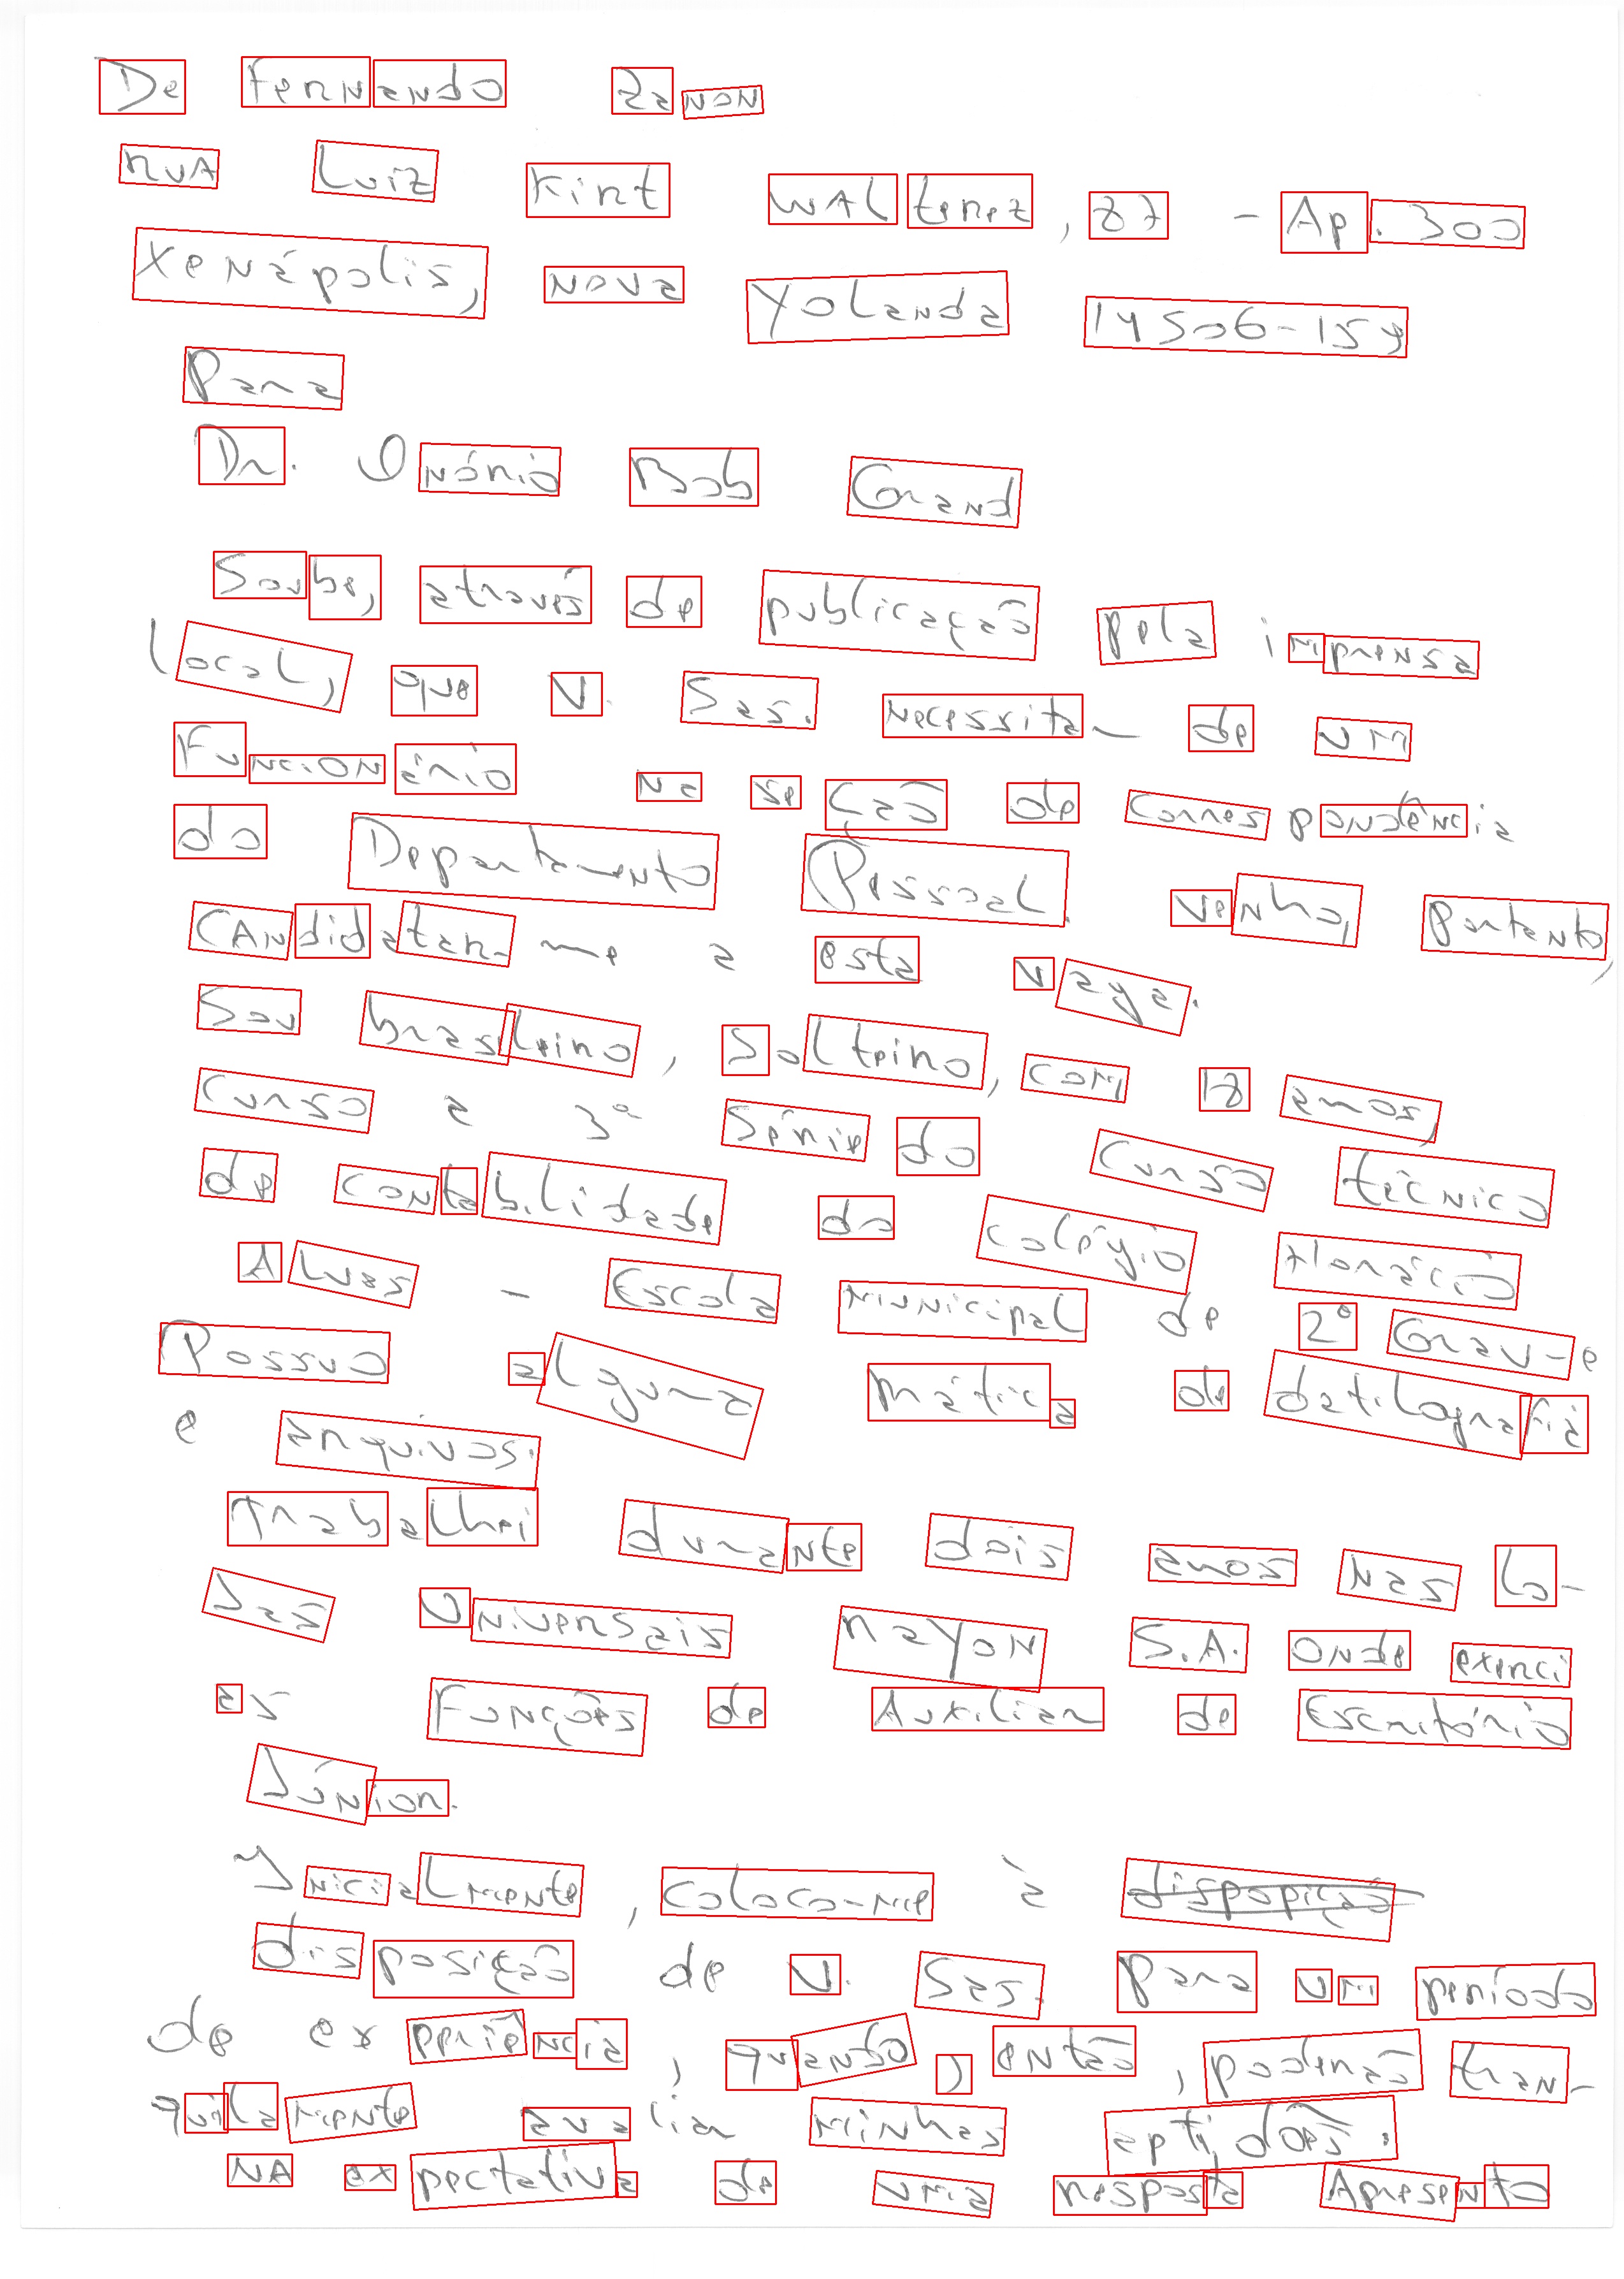 De Fernando Zanon
Rua Luiz Kirt Walterez, 87 - Ap. 300
Xenápolis, Nova Yolanda 14506-159
Para
Dr. Onório Bob Grand
Soube, através de publicação pela imprensa
local, que V. Sas. necessita de um
Funcionário na seção de correspondência
do Departamento Pessoal. Venho, portanto,
candidatar-me a esta vaga.
Sou brasileiro, Solteiro, com 18 anos,
Curso a 3ª Série do Curso técnico
de contabilidade do colégio Horácio
Alves - Escola Municipal de 2º Grau - e
Possuo alguma mática de datilografia
e arquivos.
Trabalhei durante dois anos nas Lo-
Jas Universais Rayon S.A. onde exerci
as Funções de Auxiliar de Escritório
Júnior.
Inicialmente, coloco-me à
disposição de V. Sas. para um período
de experiência, quando, então, poderão tran-
quilamente avaliar minhas aptidões.
NA expectativa de uma resposta Apresento